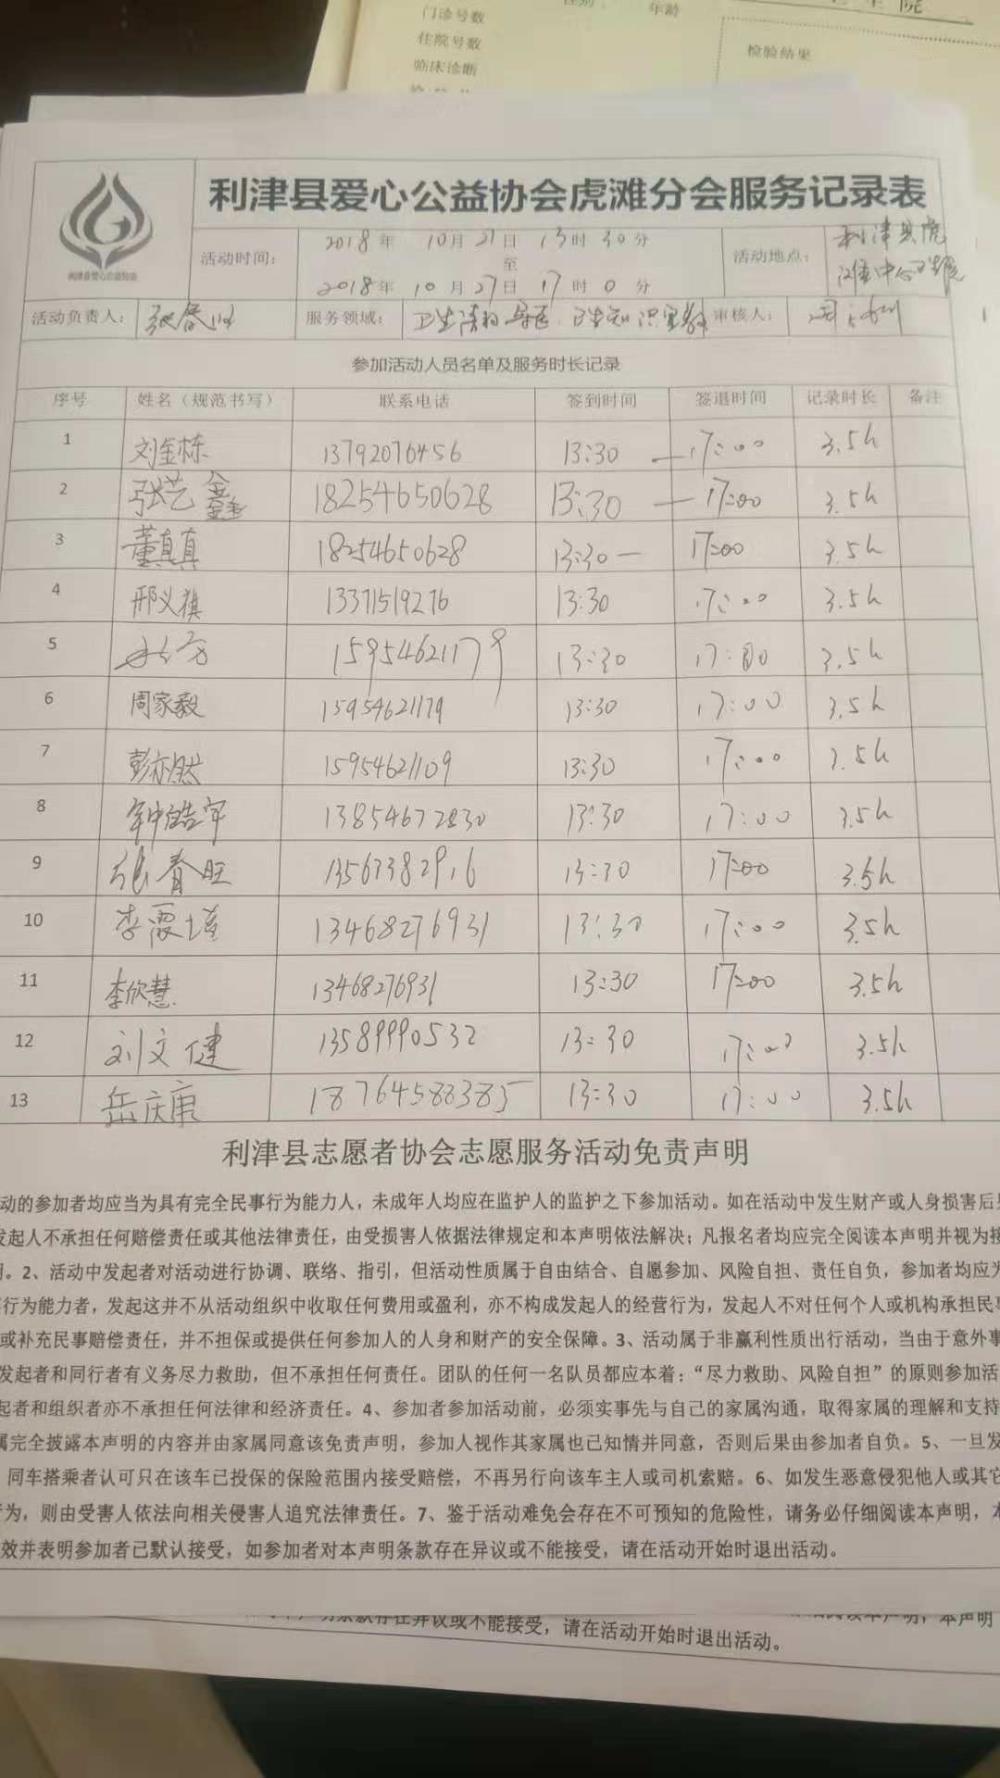 门诊号数
住院号数
临床诊断
年龄
院
检验结果
利津县爱心公益协会
利津县爱心公益协会虎滩分会服务记录表
活动时间: 2018年 10月27日 13时30分
至
2018年 10月27日 17时0分
活动地点: 利津县虎
滩中心卫生院
活动负责人: 张春旺 服务领域: 卫生清扫 卫生知识宣教 审核人:
参加活动人员名单及服务时长记录
序号 姓名(规范书写) 联系电话 签到时间 签退时间 记录时长 备注
1 刘金栋 13792076456 13:30 — 17:00 3.5h
2 张艺鑫 18254650628 13:30 — 17:00 3.5h
3 董真真 18254650628 13:30 — 17:00 3.5h
4 邢义祺 13371519276 13:30 17:00 3.5h
5 15954621179 13:30 17:00 3.5h
6 周家毅 15954621179 13:30 17:00 3.5h
7 彭亦然 15954621109 13:30 17:00 3.5h
8 钟皓宇 13854672830 13:30 17:00 3.5h
9 张春旺 13563382916 13:30 17:00 3.5h
10 李霞 13468276931 13:30 17:00 3.5h
11 李欣慧 13468276931 13:30 17:00 3.5h
12 刘文健 13589990532 13:30 17:00 3.5h
13 岳庆康 18764588385 13:30 17:00 3.5h
利津县志愿者协会志愿服务活动免责声明
动的参加者均应当为具有完全民事行为能力人，未成年人均应在监护人的监护之下参加活动。如在活动中发生财产或人身损害后
发起人不承担任何赔偿责任或其他法律责任，由受损害人依据法律规定和本声明依法解决；凡报名者均应完全阅读本声明并视为接
。2、活动中发起者对活动进行协调、联络、指引，但活动性质属于自由结合、自愿参加、风险自担、责任自负，参加者均应为
行为能力者，发起这并不从活动组织中收取任何费用或盈利，亦不构成发起人的经营行为，发起人不对任何个人或机构承担民
或补充民事赔偿责任，并不担保或提供任何参加人的人身和财产的安全保障。3、活动属于非赢利性质出行活动，当由于意外事
发起者和同行者有义务尽力救助，但不承担任何责任。团队的任何一名队员都应本着：“尽力救助、风险自担”的原则参加活
起者和组织者亦不承担任何法律和经济责任。4、参加者参加活动前，必须实事先与自己的家属沟通，取得家属的理解和支持
属完全披露本声明的内容并由家属同意该免责声明，参加人视作其家属也已知情并同意，否则后果由参加者自负。5、一旦发
同车搭乘者认可只在该车已投保的保险范围内接受赔偿，不再另行向该车主人或司机索赔。6、如发生恶意侵犯他人或其它
为，则由受害人依法向相关侵害人追究法律责任。7、鉴于活动难免会存在不可预知的危险性，请务必仔细阅读本声明，本
效并表明参加者已默认接受，如参加者对本声明条款存在异议或不能接受，请在活动开始时退出活动。
明条款存在异议或不能接受，请在活动开始时退出活动。
本声明